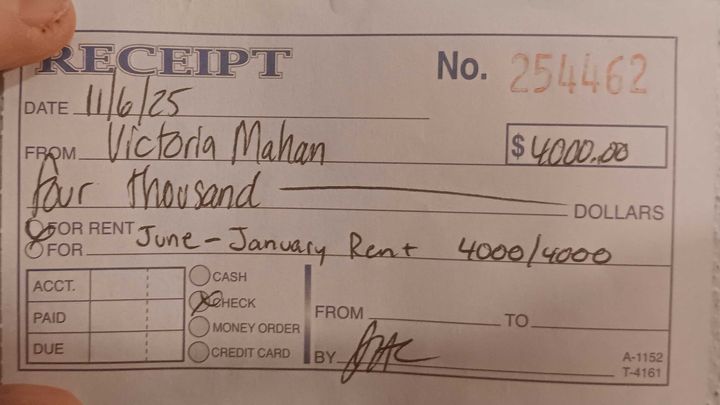 RECEIPT No. 254462
DATE 11/6/25
FROM Victoria Mahan $4000.00
four thousand DOLLARS
FOR RENT June - January Rent 4000/4000
FOR
ACCT. CASH
PAID CHECK FROM TO
MONEY ORDER
DUE CREDIT CARD BY A-1152
T-4161